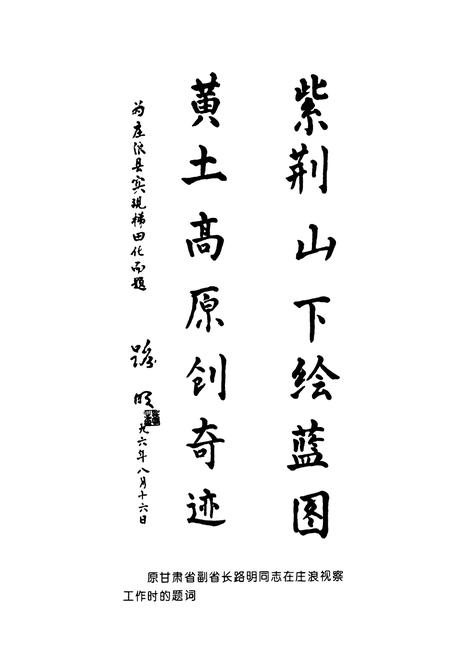 紫荆山下绘蓝图
黄土高原创奇迹
为庄浪县实现梯田化而题
路明
九六年八月十六日
原甘肃省副省长路明同志在庄浪视察
工作时的题词